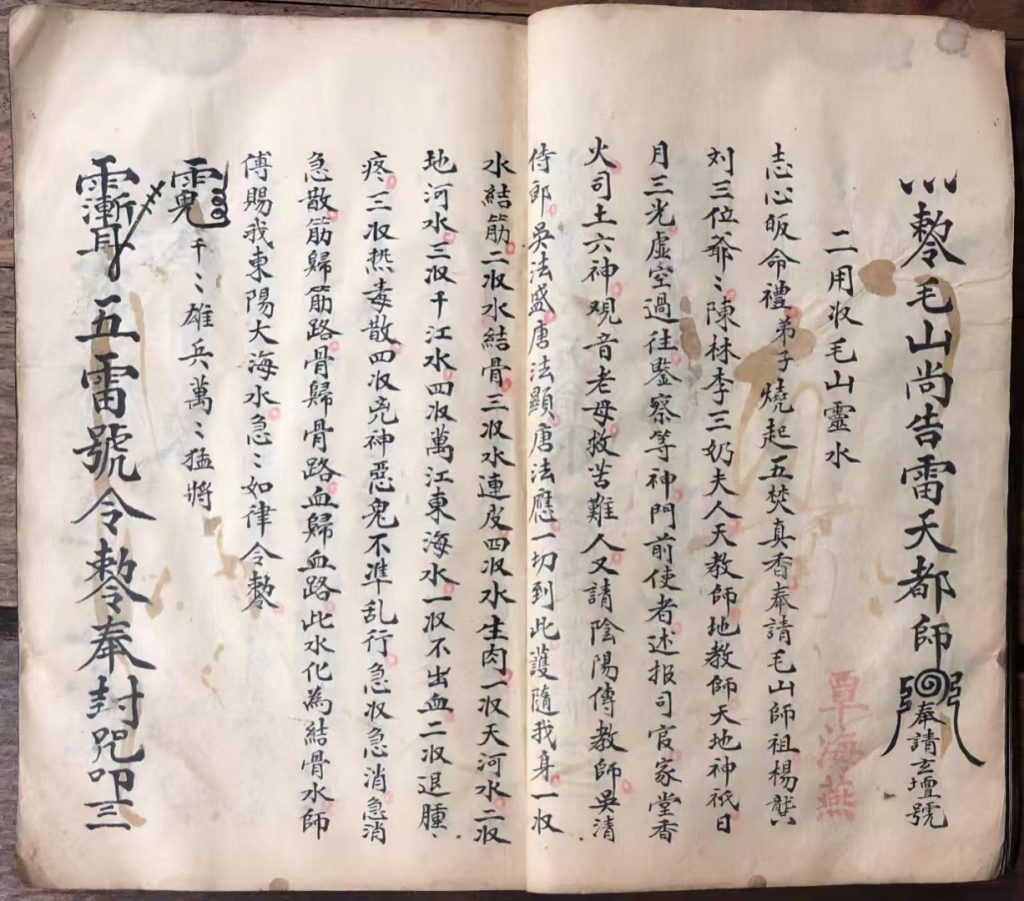 敕毛山尚告雷天都師奉請玄壇號
二用収毛山靈水
志心皈命禮弟子燒起五焚真香奉請毛山師祖楊龔
刘三位爺〻陳林李三奶夫人天教師地教師天地神祇日
月三光虛空過往鑒察等神門前使者述报司官家堂香
火司土六神观音老母救苦難人又請陰陽傳教師吳清
侍郎吳法盛唐法顯唐法應一切到此護隨我身一収
水結筋二収水結骨三収水連皮四収水生肉一収天河水二収
地河水三収千江水四収萬江東海水一収不出血二収退腫
疼三収热毒散四収尧神惡鬼不準乱行急収急消急消
急散筋歸筋路骨歸骨路血歸血路此水化為結骨水師
傅賜我東陽大海水急〻如律令敕
千〻雄兵萬〻猛將
五雷號令敕令奉封咒叩三
覃海燕